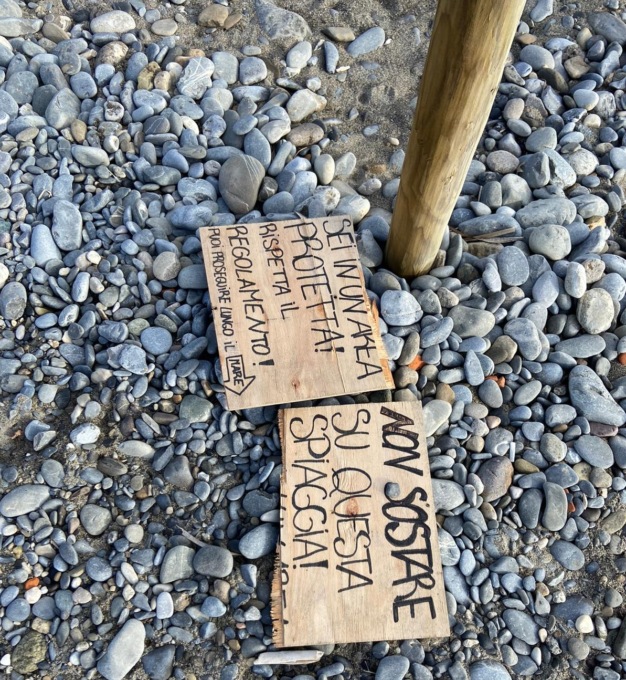 SEI IN UN'AREA
PROTETTA!
RISPETTA IL
REGOLAMENTO!
PUOI PROSEGUIRE LUNGO IL MARE
NON SOSTARE
SU QUESTA
SPIAGGIA!